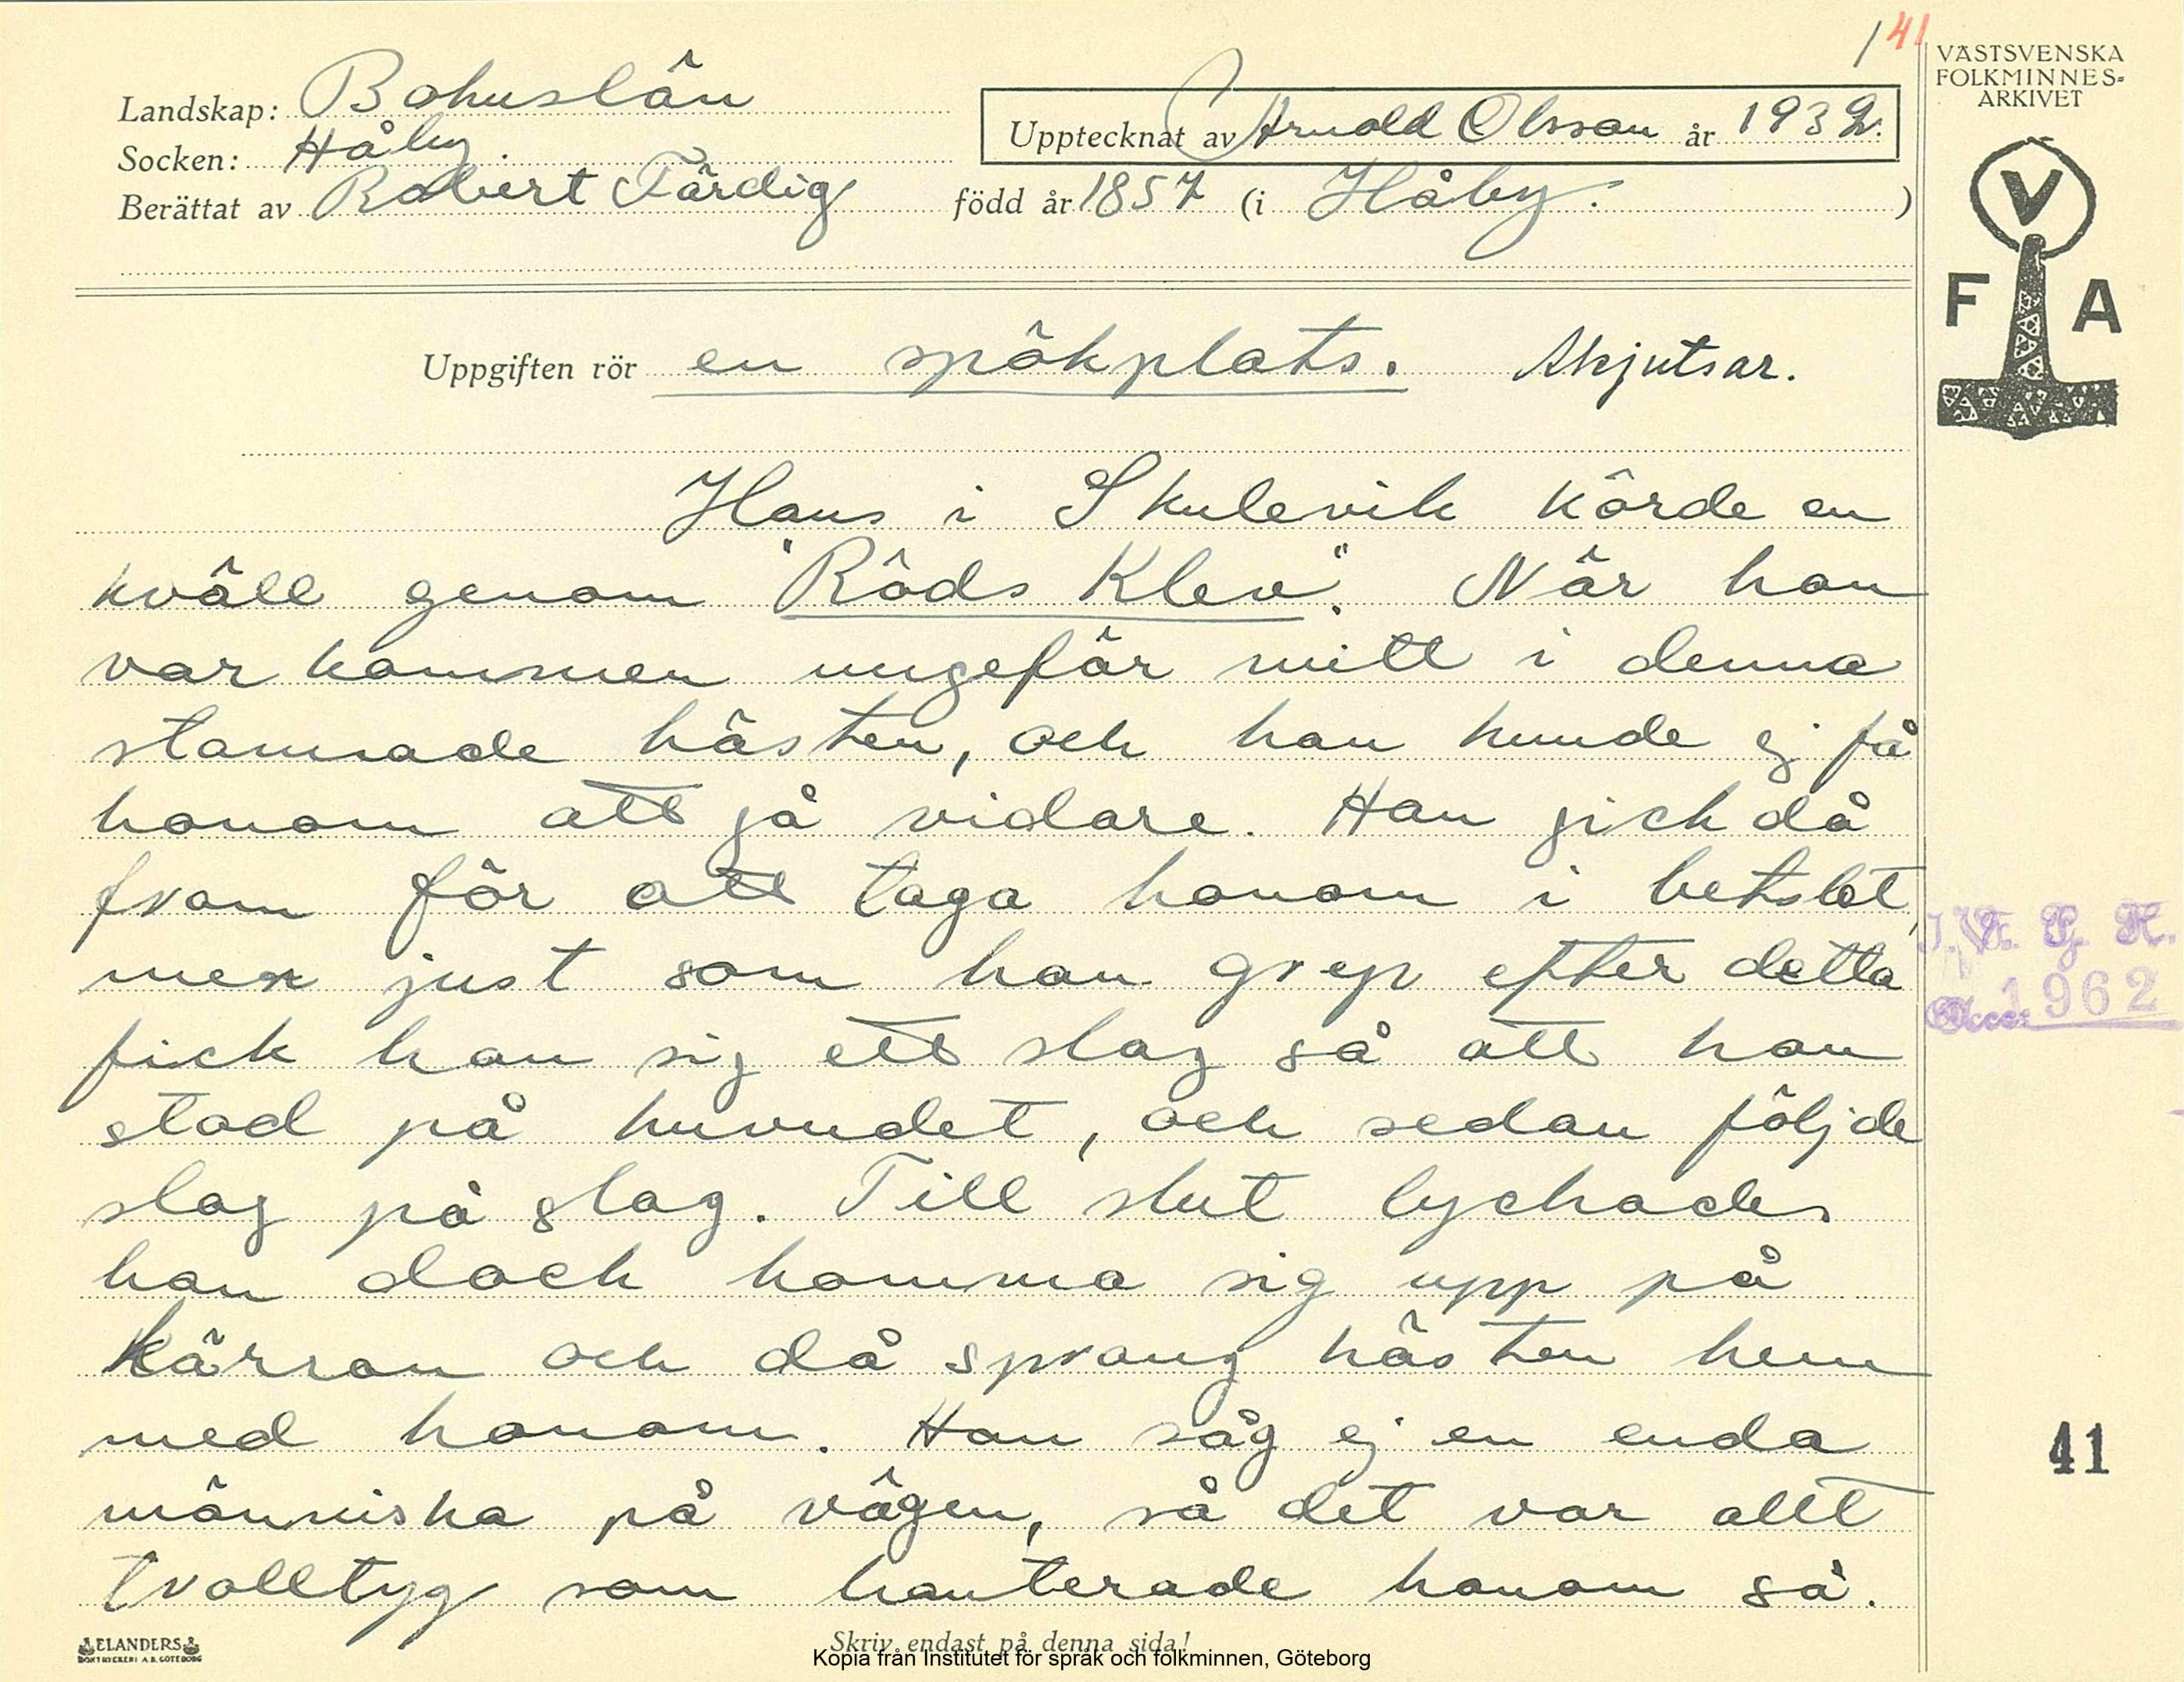 141
VÄSTSVENSKA
FOLKMINNES-
ARKIVET
Landskap: Bohuslän
Upptecknat av Arnold Olsson år 1932.
Socken: Håby.
Berättat av Robert Färdig född år 1857 (i Håby. )
V
F A
Uppgiften rör en spökplats. Skjutsar.
Hans i Skulevik körde en
kväll genom "Röds Klev". När han
var kommen ungefär mitt i denna
stannade hästen, och han kunde ej få
honom att gå vidare. Han gick då
fram för att taga honom i betslet,
men just som han grep efter detta
fick han sig ett slag så att han
stod på huvudet, och sedan följde
slag på slag. Till slut lyckades
han dock komma sig upp på
kärran och då sprang hästen hem
med honom. Han såg ej en enda
människa på vägen, så det var allt
trolltyg som hanterade honom så.
I. V. G. H.
Acc. 1962
41
ELANDERS
BOKTRYCKERI A.B. GÖTEBORG
Skriv endast på denna sida!
Kopia från Institutet för språk och folkminnen, Göteborg